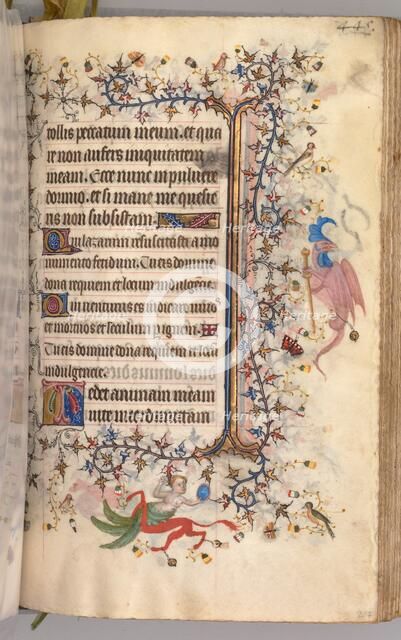 tollis peccatum meum. et qua
re non aufers iniquitatem
meam. Ecce nunc in pulvere
dormio. et si mane me quesie
ris non subsistam.
Qui lazarum resuscitasti a mo
numento fetidum. Tu eis domine
dona requiem et locum indulgencie.
Qui venturus es iudicare vivos
et mortuos et seculum per ignem.
Tu eis domine dona requiem et locum
indulgencie.
Tedet animam meam
vite mee dimittam
Heritage